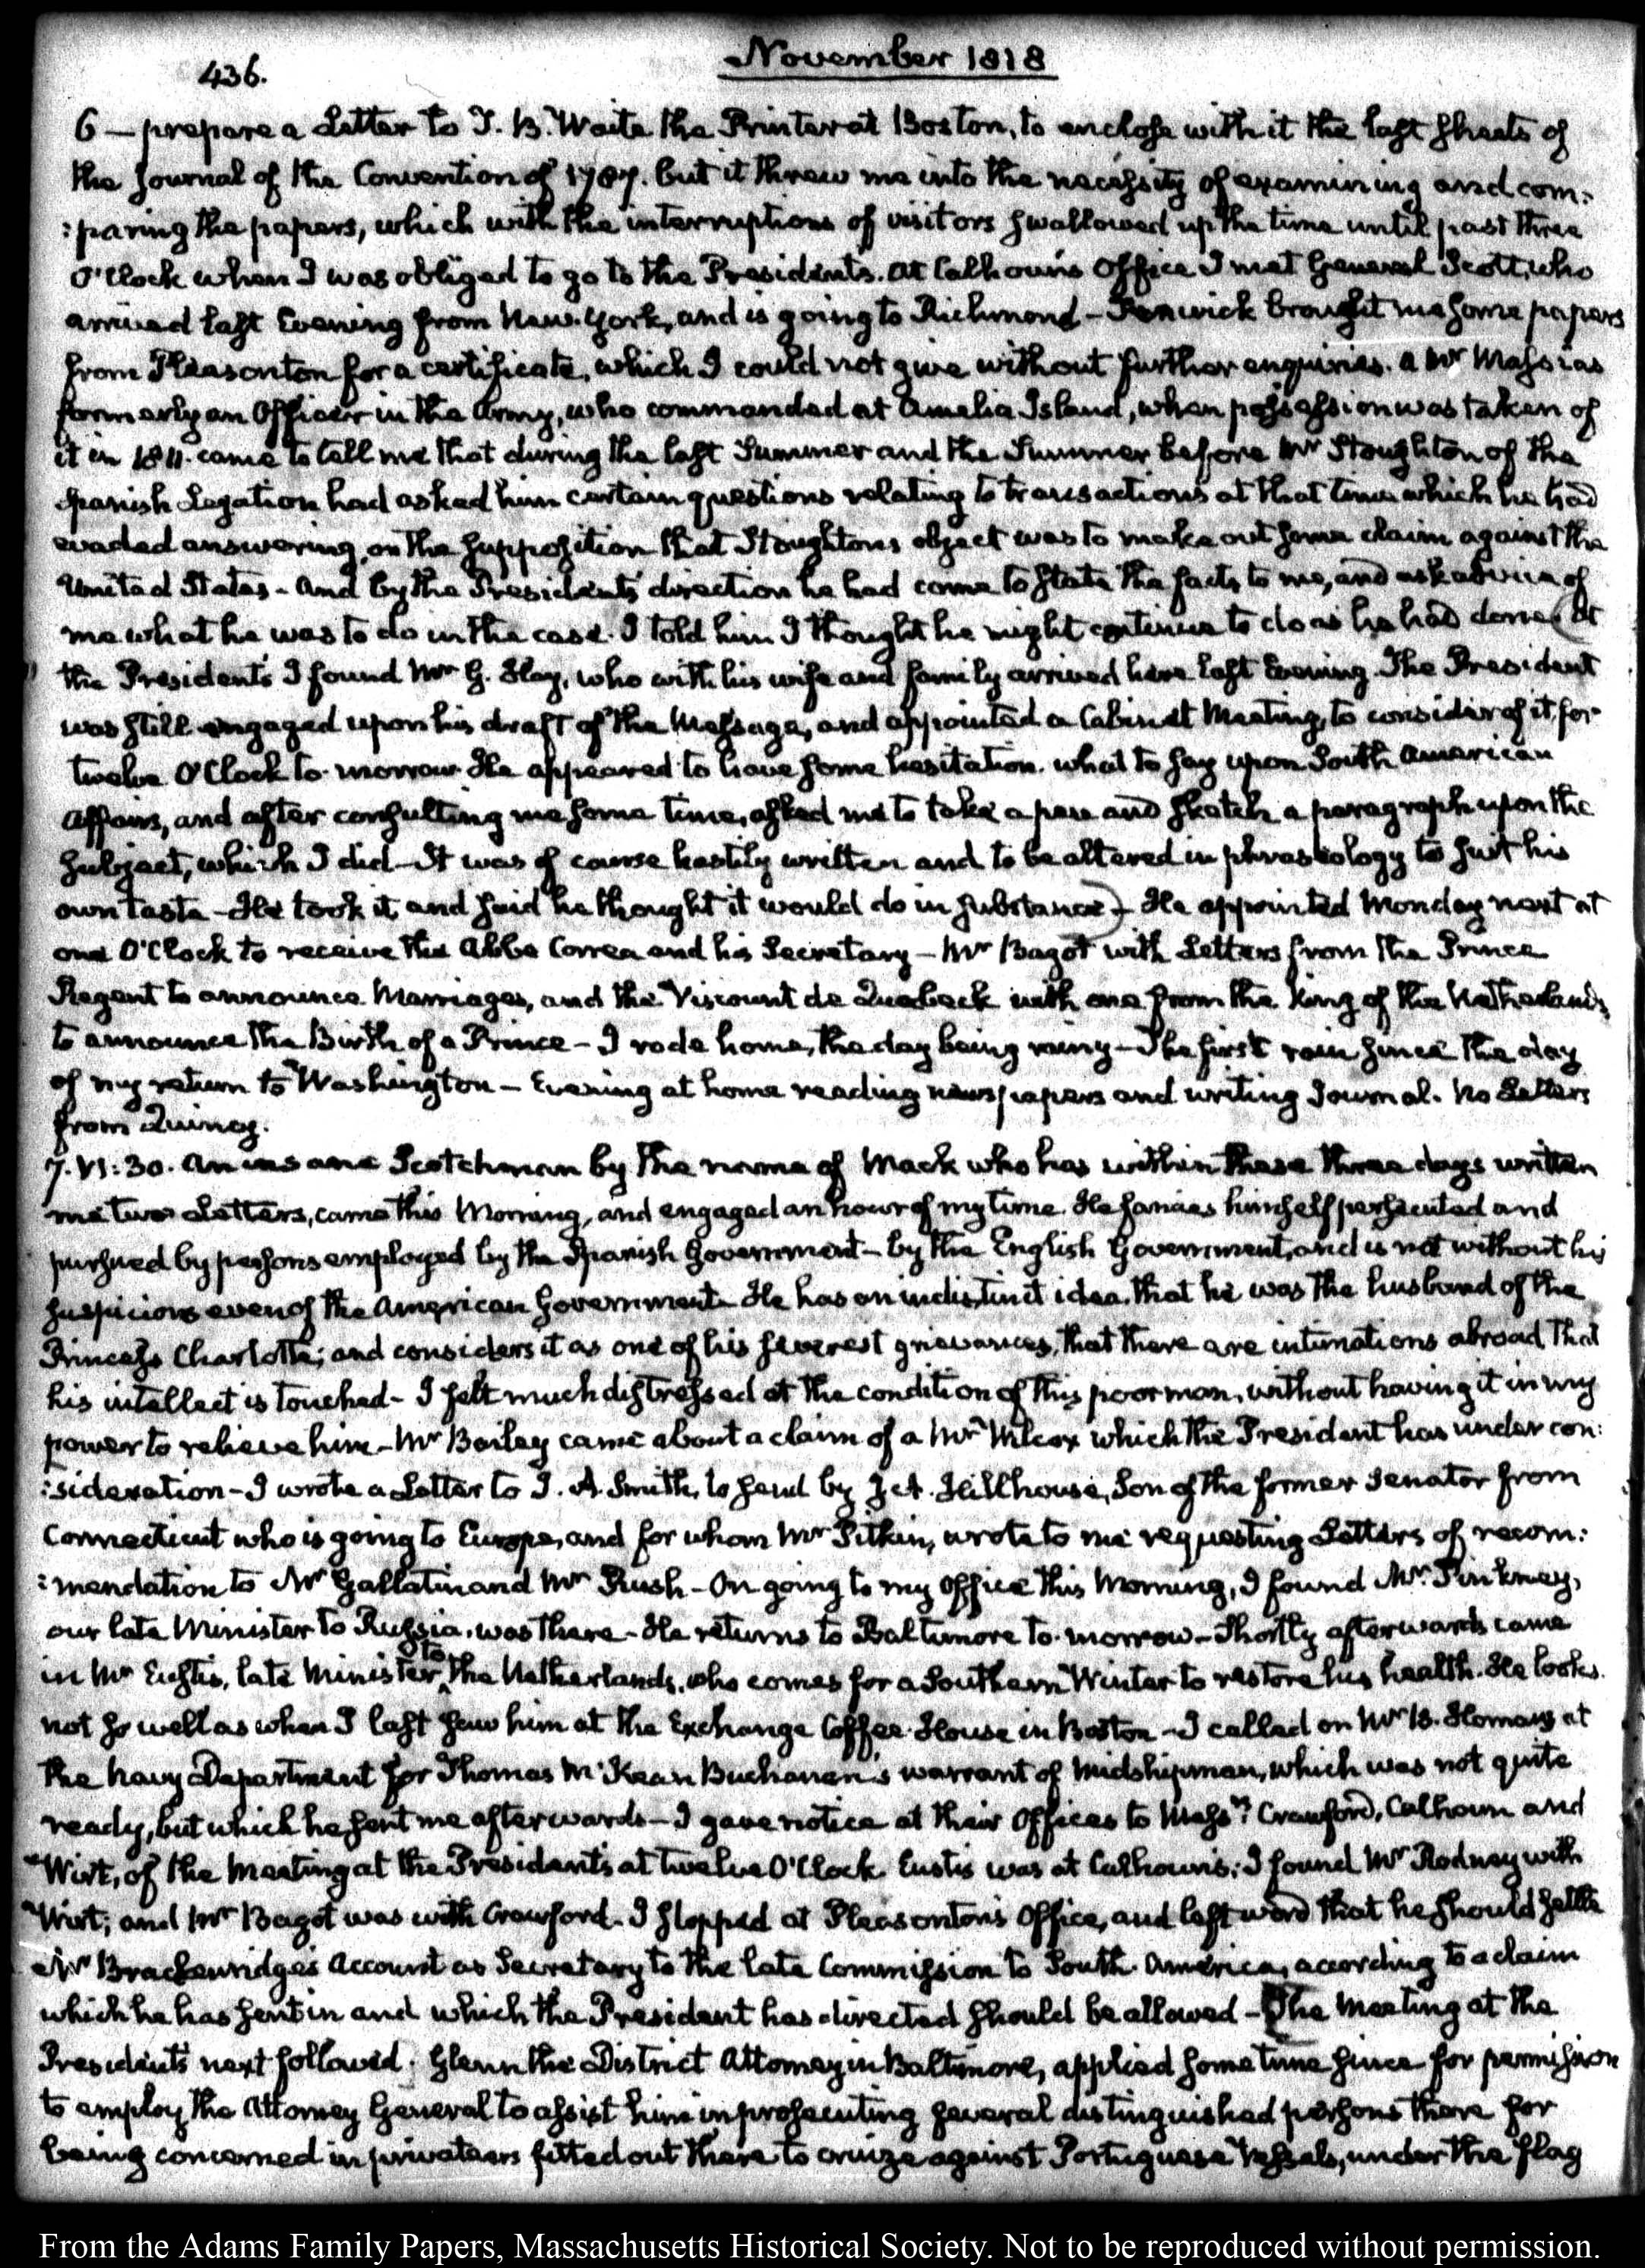 436.
November 1818
6 — prepare a Letter to T. B. Waite the Printer at Boston, to enclose with it the last sheets of
the Journal of the Convention of 1787. but it threw me into the necessity of examining and com:
:paring the papers, which with the interruptions of visitors swallowed up the time until past three
O'Clock when I was obliged to go to the Presidents. At Calhoun's Office I met General Scott, who
arrived last Evening from New-York, and is going to Richmond – Fenwick brought me some papers
from Pleasonton for a certificate, which I could not give without further enquiries. a Mr Massias
formerly an Officer in the Army, who commanded at Amelia Island, when possession was taken of
it in 1811. came to tell me that during the last Summer and the Summer before Mr Stoughton of the
Spanish Legation had asked him certain questions relating to transactions at that time which he had
evaded answering, on the supposition that Stoughtons object was to make out some claim against the
United States – And by the President's direction he had come to state the facts to me, and ask advice of
me what he was to do in the case. I told him I thought he might continue to do as he had done (At
the President's I found Mr G. Hay, who with his wife and family arrived here last Evening. The President
was still engaged upon his draft of the Message, and appointed a Cabinet Meeting, to consider of it for
twelve O'Clock to-morrow. He appeared to have some hesitation what to say upon South American
Affairs, and after consulting me some time, asked me to take a pen and sketch a paragraph upon the
subject, which I did – It was of course hastily written and to be altered in phraseology to suit his
own taste – He took it, and said he thought it would do in substance) – He appointed Monday next at
one O'Clock to receive the Abbe Correa and his Secretary – Mr Bagot with Letters from the Prince
Regent to announce Marriages, and the Viscount de Quabeck with one from the King of the Netherlands,
to announce the Birth of a Prince – I rode home, the day being rainy – The first rain since the day
of my return to Washington – Evening at home reading newspapers and writing Journal. No Letters
from Quincy.
7. VI:30. An insane Scotchman by the name of Mack who has within these three days written
me two Letters, came this Morning, and engaged an hour of my time. He fancies himself persecuted and
pursued by persons employed by the Spanish Government – by the English Government, and is not without his
suspicions even of the American Government. He has an indistinct idea that he was the husband of the
Princess Charlotte; and considers it as one of his severest grievances, that there are intimations abroad that
his intellect is touched – I felt much distressed at the condition of this poor man, without having it in my
power to relieve him – Mr Bailey came about a claim of a Mr Wilcox which the President has under con:
:sideration – I wrote a Letter to J. A. Smith, to send by J. A. Hillhouse, Son of the former Senator from
Connecticut who is going to Europe, and for whom Mr Pitkin, wrote to me requesting Letters of recom:
:mendation to Mr Gallatin and Mr Rush – On going to my Office this Morning, I found Mr. Pinkney,
our late Minister to Russia, was there – He returns to Baltimore to-morrow – Shortly afterwards came
in Mr Eustis, late Minister to the Netherlands, who comes for a Southern Winter to restore his health. He looks
not so well as when I last saw him at the Exchange Coffee-House in Boston – I called on Mr B. Homans at
the Navy Department for Thomas McKean Buchanan's warrant of Midshipman, which was not quite
ready, but which he sent me afterwards – I gave notice at their Offices to Messrs Crawford, Calhoun and
Wirt, of the Meeting at the President's at twelve O'Clock. Eustis was at Calhoun's; I found Mr Rodney with
Wirt; and Mr Bagot was with Crawford – I stopped at Pleasonton's Office, and left word that he should settle
Mr Brackenridge's Account as Secretary to the late Commission to South-America, according to a claim
which he has sent in and which the President has directed should be allowed – The Meeting at the
President's next followed. Glenn the District Attorney in Baltimore, applied some time since for permission
to employ the Attorney General to assist him in prosecuting several distinguished persons there for
being concerned in privateers fitted out there to cruize against Portuguese Vessels, under the flag
From the Adams Family Papers, Massachusetts Historical Society. Not to be reproduced without permission.